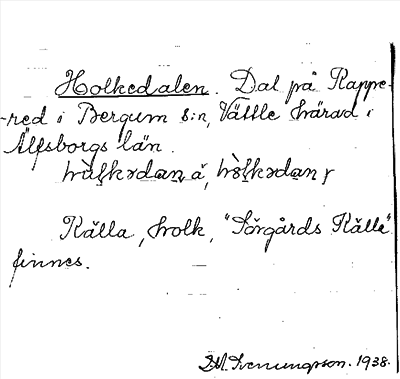 Holkedalen. Dal på Rappe-
-red i Bergum s:n, Vättle härad i
Älfsborgs län.
Källa, holk, "Sörgårds Källe"
finnes.
D.M. Svenungsson. 1938.